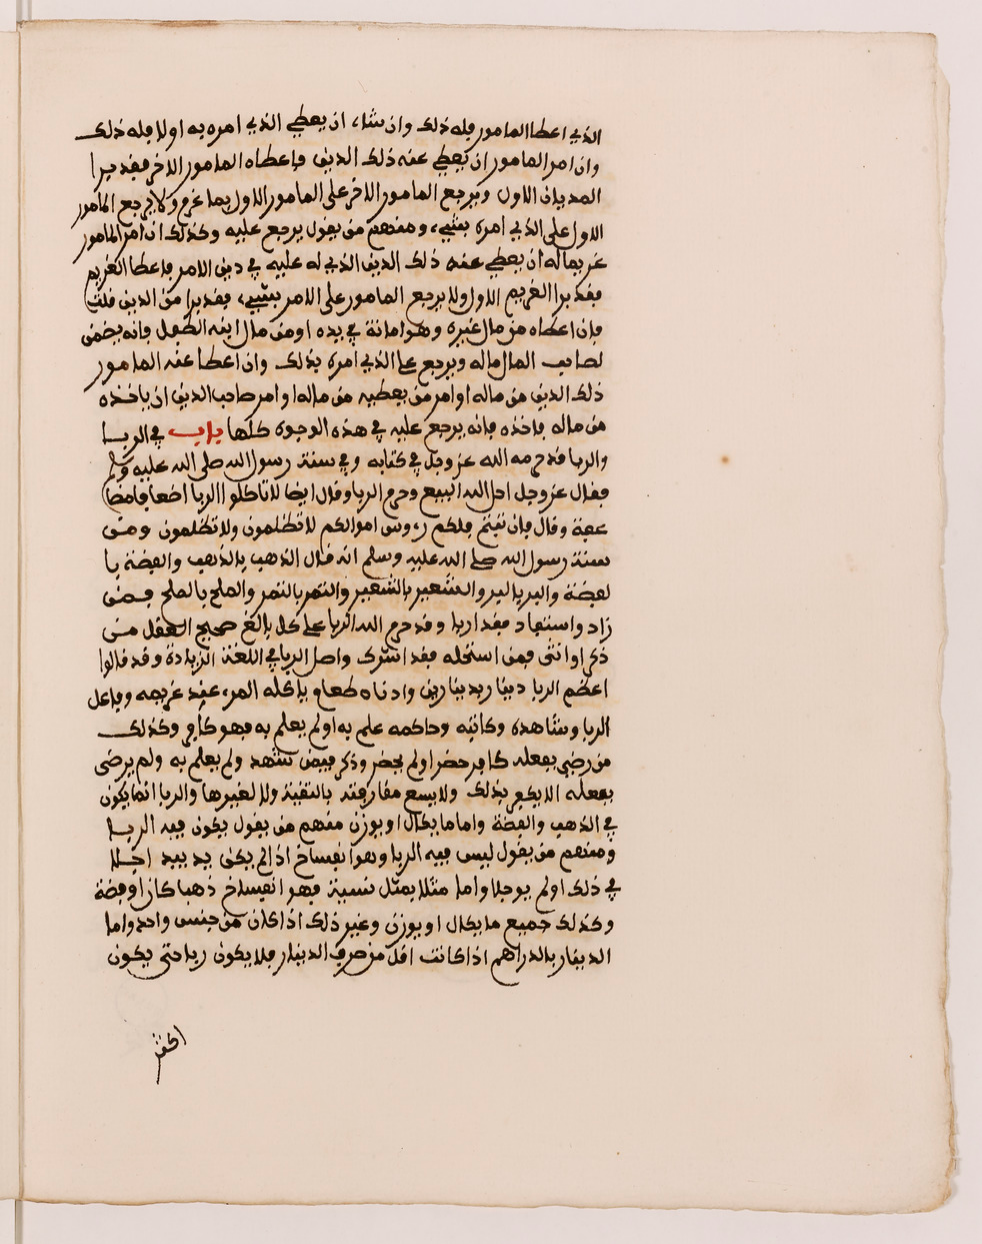 الذي اعطا المامور فله ذلك وان شاء ان يعطي الذي امره به اولا فله ذلك
وان امر المامور ان يعطي عنه ذلك الدين فاعطاه المامور الاخر فقد برا
المديان الاول ويرجع المامور الاخر على المامور الاول بما غرم ولا يرجع المامور
الاول على الذي امره بشيء ومنهم من يقول يرجع عليه وكذلك ان امر المامور
غريما له ان يعطي عنه ذلك الدين الذي له عليه في دين الامر فاعطا الغريم
فقد برا الغريم الاول ولا يرجع المامور على الامر بشيء فقد برا من الدين قلت
فان اعطاه من مال غيره وهو امانة في يده او من مال ابنه الطفل فانه يضمن
لصاحب المال ماله ويرجع على الذي امره بذلك وان اعطا عنه المامور
ذلك الدين من ماله او امر من يعطيه من ماله او امر صاحب الدين ان ياخذه
من ماله فاخذه فانه يرجع عليه في هذه الوجوه كلها باب في الربا
والربا قد حرمه الله عز وجل في كتابه وفي سنة رسول الله صلى الله عليه وسلم
فقال عز وجل احل الله البيع وحرم الربا وقال ايضا لا تاكلوا الربا اضعافا مضا
عفة وقال فان تبتم فلكم رءوس اموالكم لا تظلمون ولا تظلمون ومن
سنة رسول الله صلى الله عليه وسلم انه قال الذهب بالذهب والفضة با
لفضة والبر بالبر والشعير بالشعير والتمر بالتمر والملح بالملح فمن
زاد واستزاد فقد اربا وقد حرم الله الربا على كل بالغ صحيح العقل من
ذكر او انثى فمن استحله فقد اشرك واصل الربا في اللغة الزيادة وقد قالوا
اعظم الربا دينار بدينارين وادناه طعام ياكله المرء عند غريمه وفاعل
الربا وشاهده وكاتبه وحاكمه علم به او لم يعلم به فهو كافر وكذلك
من رضي بفعله كافر حضر او لم يحضر وذكر فيمن شهد ولم يعلم به ولم يرضى
بفعله الا يكفر بذلك ولا يسع مقارفته بالتقية ولا لغيرها والربا انما يكون
في الذهب والفضة واما ما يكال او يوزن منهم من يقول يكون فيه الربا
ومنهم من يقول ليس فيه الربا وهو انفساخ اذا لم يكن يد بيد اجلا
في ذلك او لم يوجلا واما مثلا بمثل نسية فهو انفساخ ذهبا كان او فضة
وكذلك جميع ما يكال او يوزن وغير ذلك اذا كان من جنس واحد واما
الدينار بالدراهم اذا كانت اقل من صرف الدينار فلا يكون ربا حتى يكون
اكثر